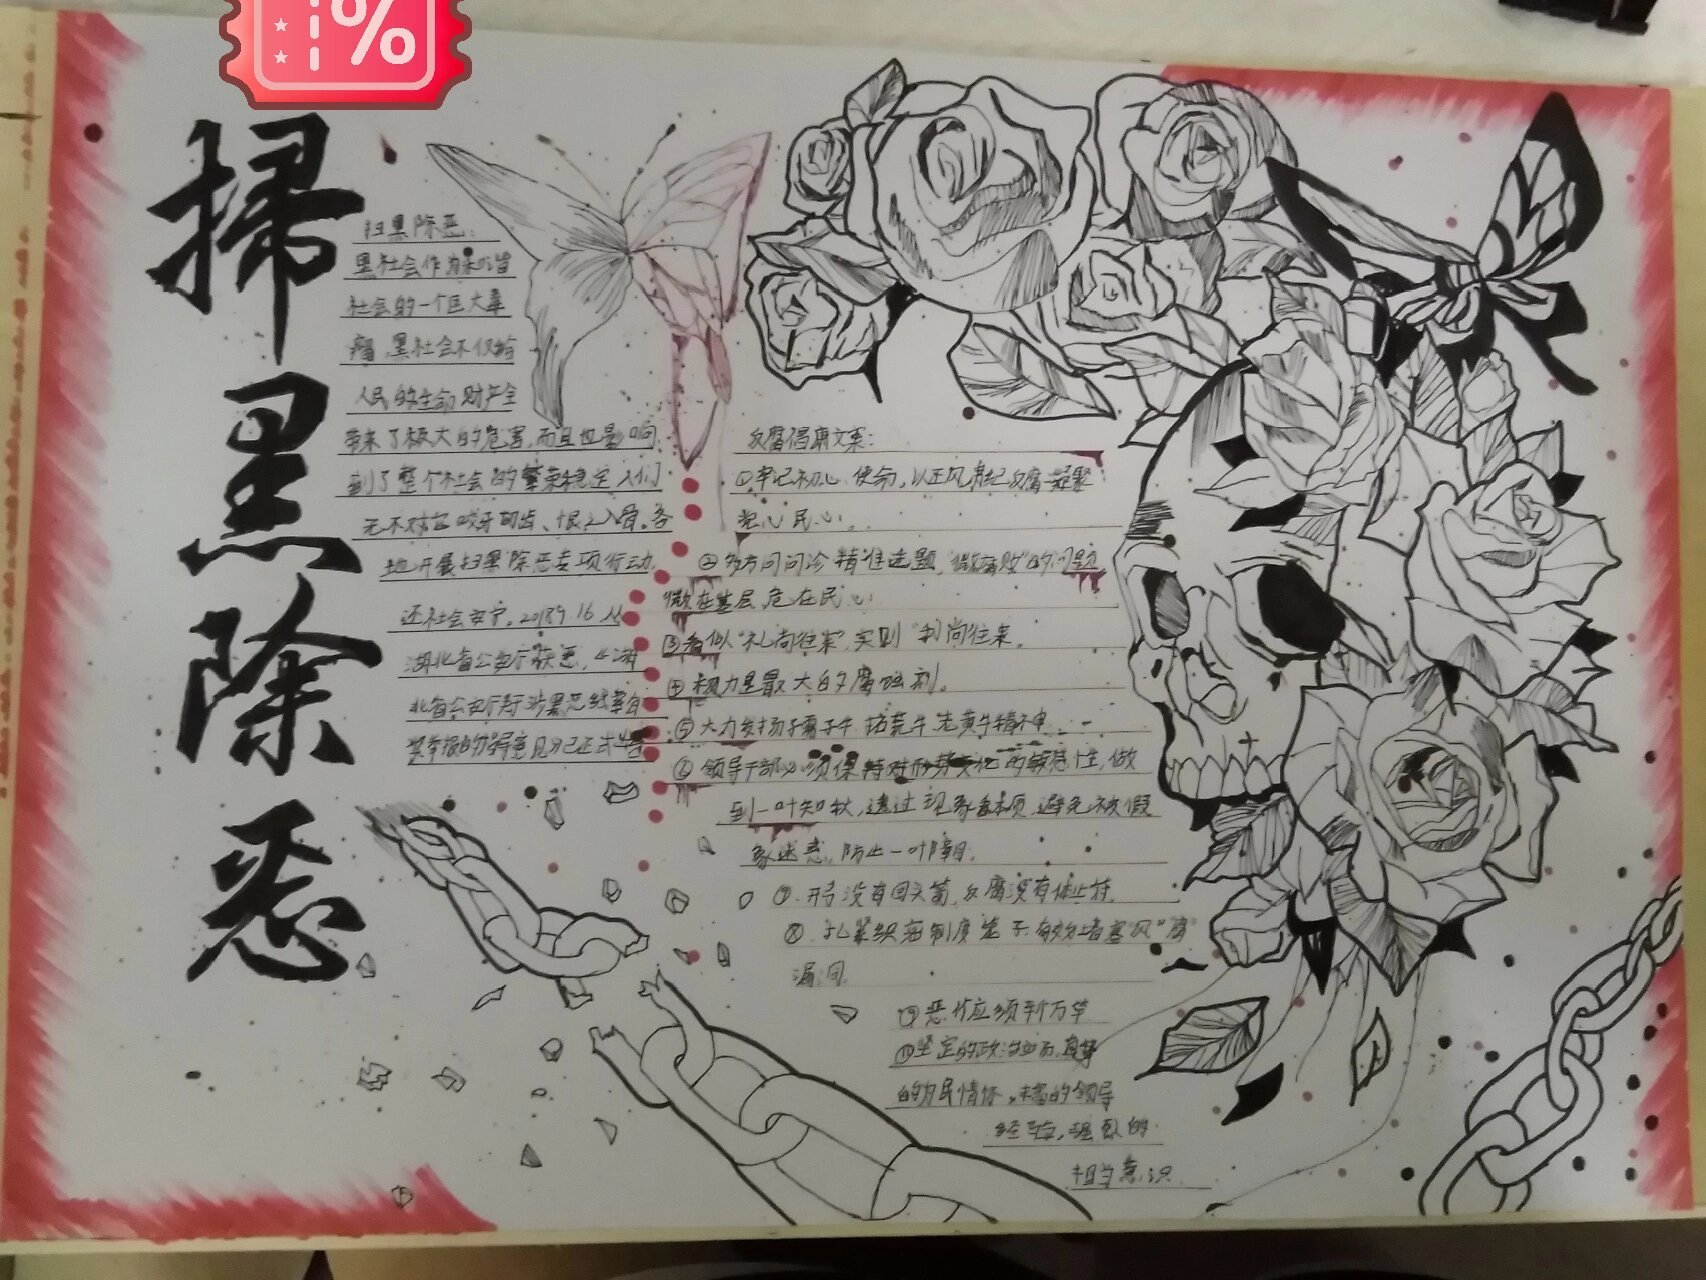 %
掃黑除恶
扫黑除恶:
黑社会作为
社会的一个巨大毒
瘤,黑社会不仅给
人民的生命财产
带来了极大的危害,而且也影响
到了整个社会的繁荣稳定人们
无不对 咬牙切齿、恨之入骨。各
地开展扫黑除恶专项行动,
还社会安宁。
湖北省公安厅获悉,
北省公安厅对涉黑恶线索
奖举报的 意见 已正式
反腐倡廉文案:
①牢记初心、使命,以正风肃纪反腐凝聚
党心民心。
②多方问诊精准选题,"微腐败"的问题
微在基层,危在民心
③看似"礼尚往来",实则"利尚往来。
④权力是最大的腐蚀剂。
⑤大力发扬孺子牛、拓荒牛、老黄牛精神
⑥领导干部必须保持对形势变化的敏感性,做
到一叶知秋,透过现象看本质,避免被假
象迷惑,防止一叶障目。
⑦.开弓没有回头箭,反腐没有休止符.
⑧.扎紧织密制度笼子,有效堵塞风"腐"
漏洞.
⑨恶竹应须斩万竿
⑩坚定的政治 面,真挚
的为民情怀,丰富的领导
经验,强烈的
担当意识.